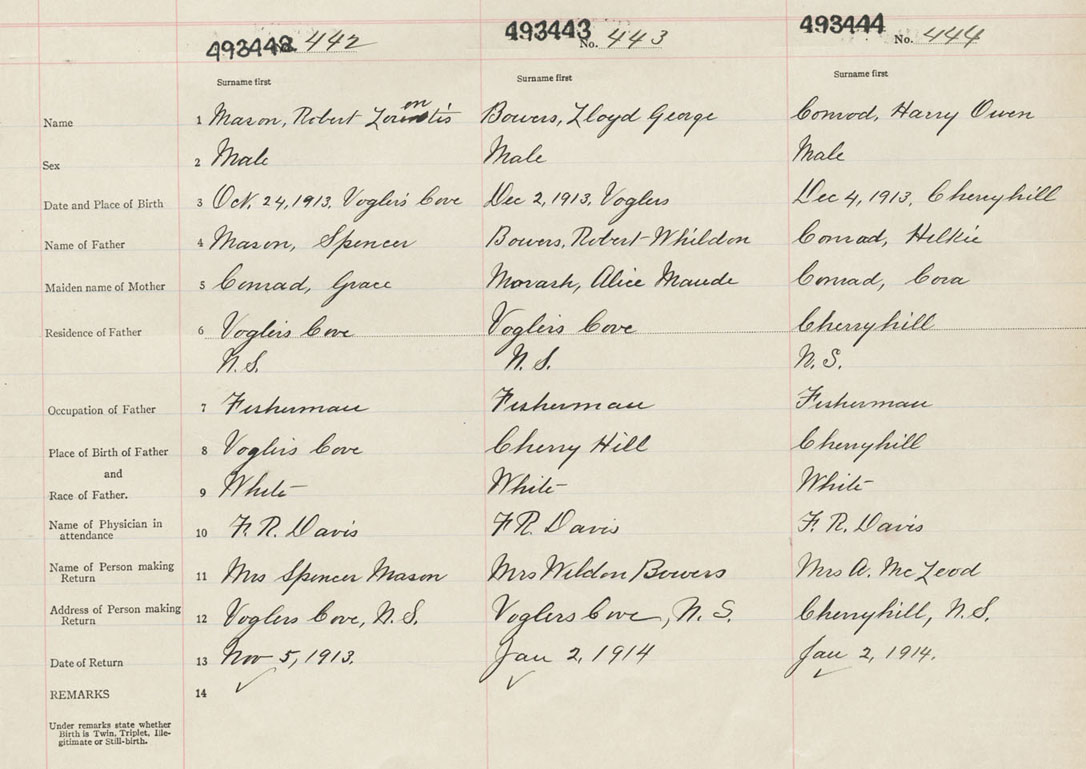 493442 No. 442 493443 No. 443 493444 No. 444
Surname first Surname first Surname first
Name 1 Mason, Robert Bowers, Lloyd George Conrod, Harry Owen
Sex 2 Male Male Male
Date and Place of Birth 3 Oct. 24, 1913, Voglers Cove Dec 2, 1913, Voglers Dec 4, 1913, Cherryhill
Name of Father 4 Mason, Spencer Bowers, Robert Whildon Conrad, Helkie
Maiden name of Mother 5 Conrad, Grace Alice Maude Conrad, Cora
Residence of Father 6 Voglers Cove Voglers Cove Cherryhill
N.S. N.S. N.S.
Occupation of Father 7 Fisherman Fisherman Fisherman
Place of Birth of Father 8 Voglers Cove Cherry Hill Cherryhill
and
Race of Father. 9 White White White
Name of Physician in
attendance 10 F. R. Davis F R. Davis F. R. Davis
Name of Person making
Return 11 Mrs Spencer Mason Mrs Weldon Bowers Mrs A. McLeod
Address of Person making
Return 12 Voglers Cove, N.S. Voglers Cove, N.S. Cherryhill, N.S.
Date of Return 13 Nov 5, 1913. Jan 2, 1914 Jan 2, 1914.
REMARKS 14
Under remarks state whether
Birth is Twin, Triplet, Ille-
gitimate or Still-birth.